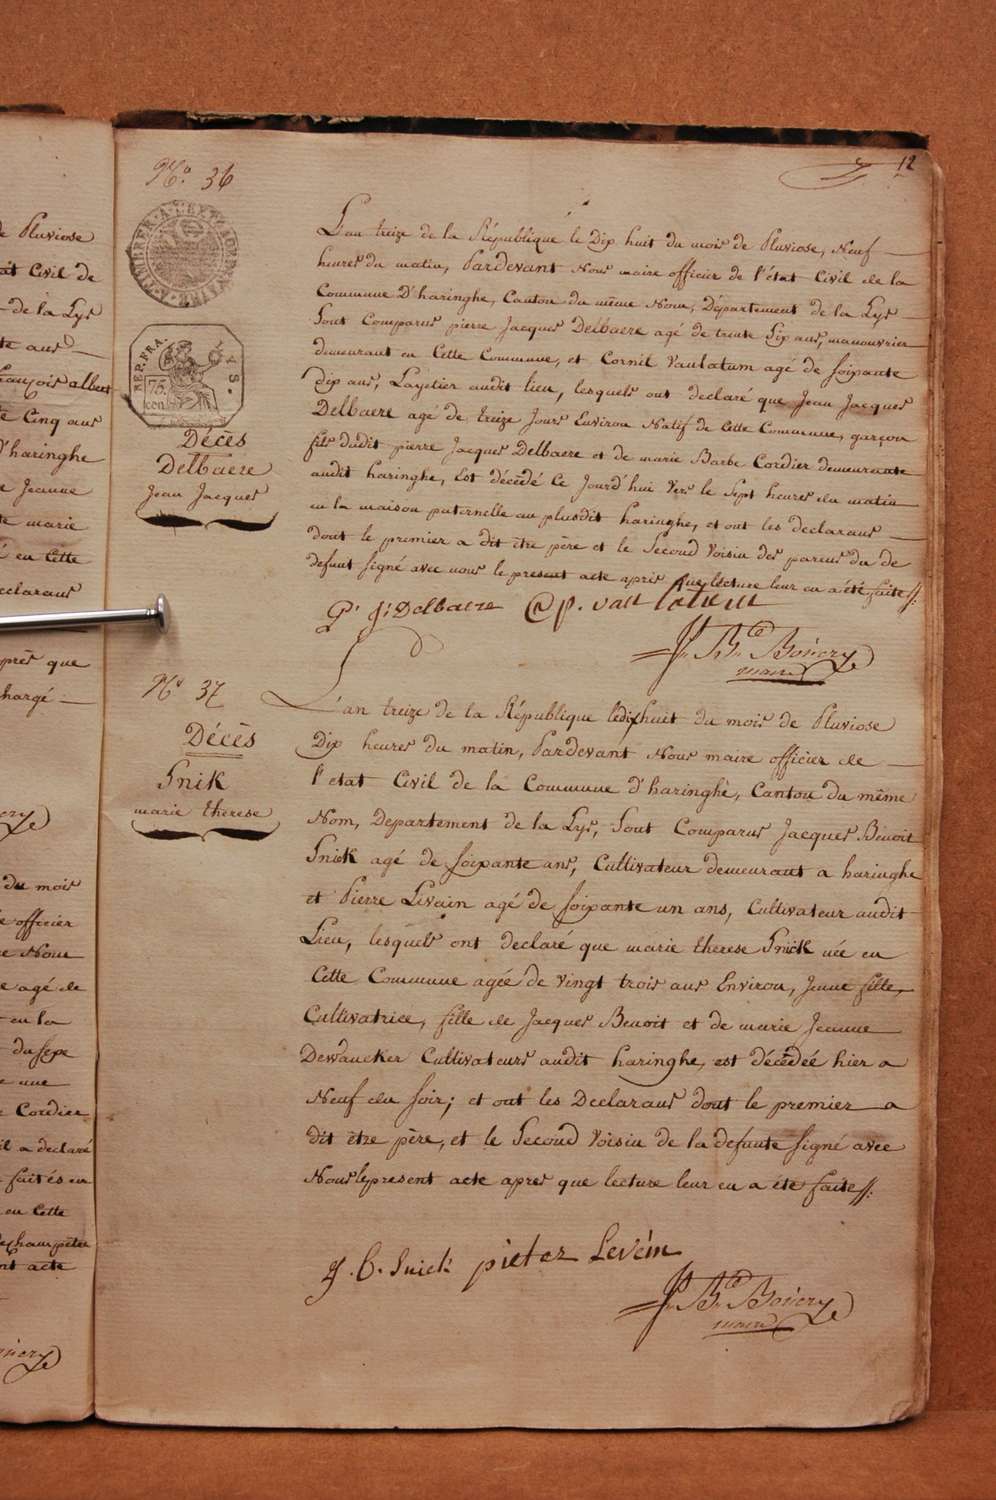 de Pluviose
état Civil de
de la Lys
te ans
françois albert
te Cinq ans
d'haringhe
e Jeanne
te marie
é en Cette
eclaraus
près que
chargé
du mois
e officier
e Nom
e agé de
en la
du sexe
e une
e Cordier
il a declaré
faités en
en Cette
de champêtre
nt acte
12
No. 36
TIMBRER A L'EXTRAORDINAIRE
REP. FRA.
75.
cen
LYS.
Décès
Delbaere
Jean Jacques
L'an treize de la République le Dix huit du mois de Pluviose, Neuf
heures du matin, Pardevant Nous maire officier de l'état Civil de la
Commune D'haringhe, Canton du même Nom, Département de la Lys
Sont Comparus pierre Jacques Delbaere agé de trente Six ans, manouvrier
demeurant en Cette Commune, et Cornil Vanlatum agé de soixante
dix ans, Layetier audit lieu, lesquels ont declaré que Jean Jacques
Delbaere agé de treize Jours Environ Natif de Cette Commune, garçon
fils dudit pierre Jacques Delbaere et de marie Barbe Cordier demeurante
audit haringhe, Est décédé Ce Jourd'hui Vers le Sept heures du matin
en la maison paternelle au plusdit haringhe, et ont les declaraus
dont le premier a dit être père et le Second Voisin des parens du de
defunt signé avec nous le present acte aprés que lecture leur en a été faite //:
P. J. Delbaere C. p. van latum
J. Bte Boucry
maire
No 37
Décès
Snik
marie therese
L'an treize de la République le dix huit du mois de Pluviose
Dix heures du matin, Pardevant Nous maire officier de
l'etat Civil de la Commune d'haringhe, Canton du même
Nom, Departement de la Lys, Sont Comparus Jacques Benoit
Snick agé de soixante ans, Cultivateur demeurant a haringhe
et Pierre Livain agé de soixante un ans, Cultivateur audit
Lieu, lesquels ont declaré que marie therese Snick née en
Cette Commune agée de Vingt trois ans Environ, Jeune fille,
Cultivatrice, fille de Jacques Benoit et de marie Jeanne
Dewancker Cultivateurs audit haringhe, est décédée hier a
Neuf du soir; et ont les Declaraus dont le premier a
dit être père, et le Second Voisin de la defunte signé avec
Nous le present acte apres que lecture leur en a été faite //:
J. B. Snick pieter Levein
J. Bte Boucry
maire